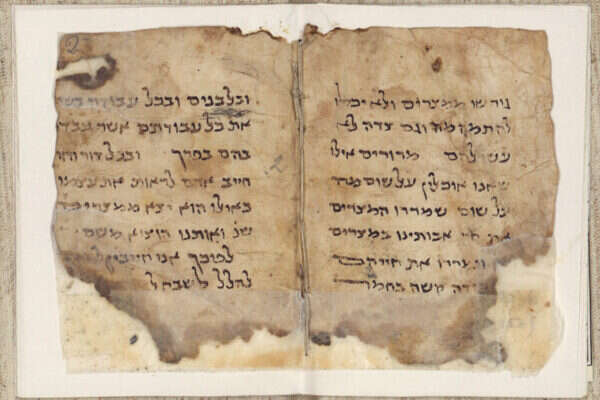 גורשו ממצרים ולא יכלו
להתמהמה וגם צדה לא
עשו להם מרורים אילו
שאנו אוכלין על שום מה
על שום שמררו המצרים
את חיי אבותינו במצרים
וימררו את חייהם
קשה בחמר
2
ובלבנים ובכל עבודה בשד
את כל עבודתם אשר עבדו
בהם בפרך ובכל דור ודור
חייב אדם לראות את עצמו
כאילו הוא יצא ממצרים
שנ ואותנו הוציא משם
לפיכך אנו חייבין
להלל לשבח ל